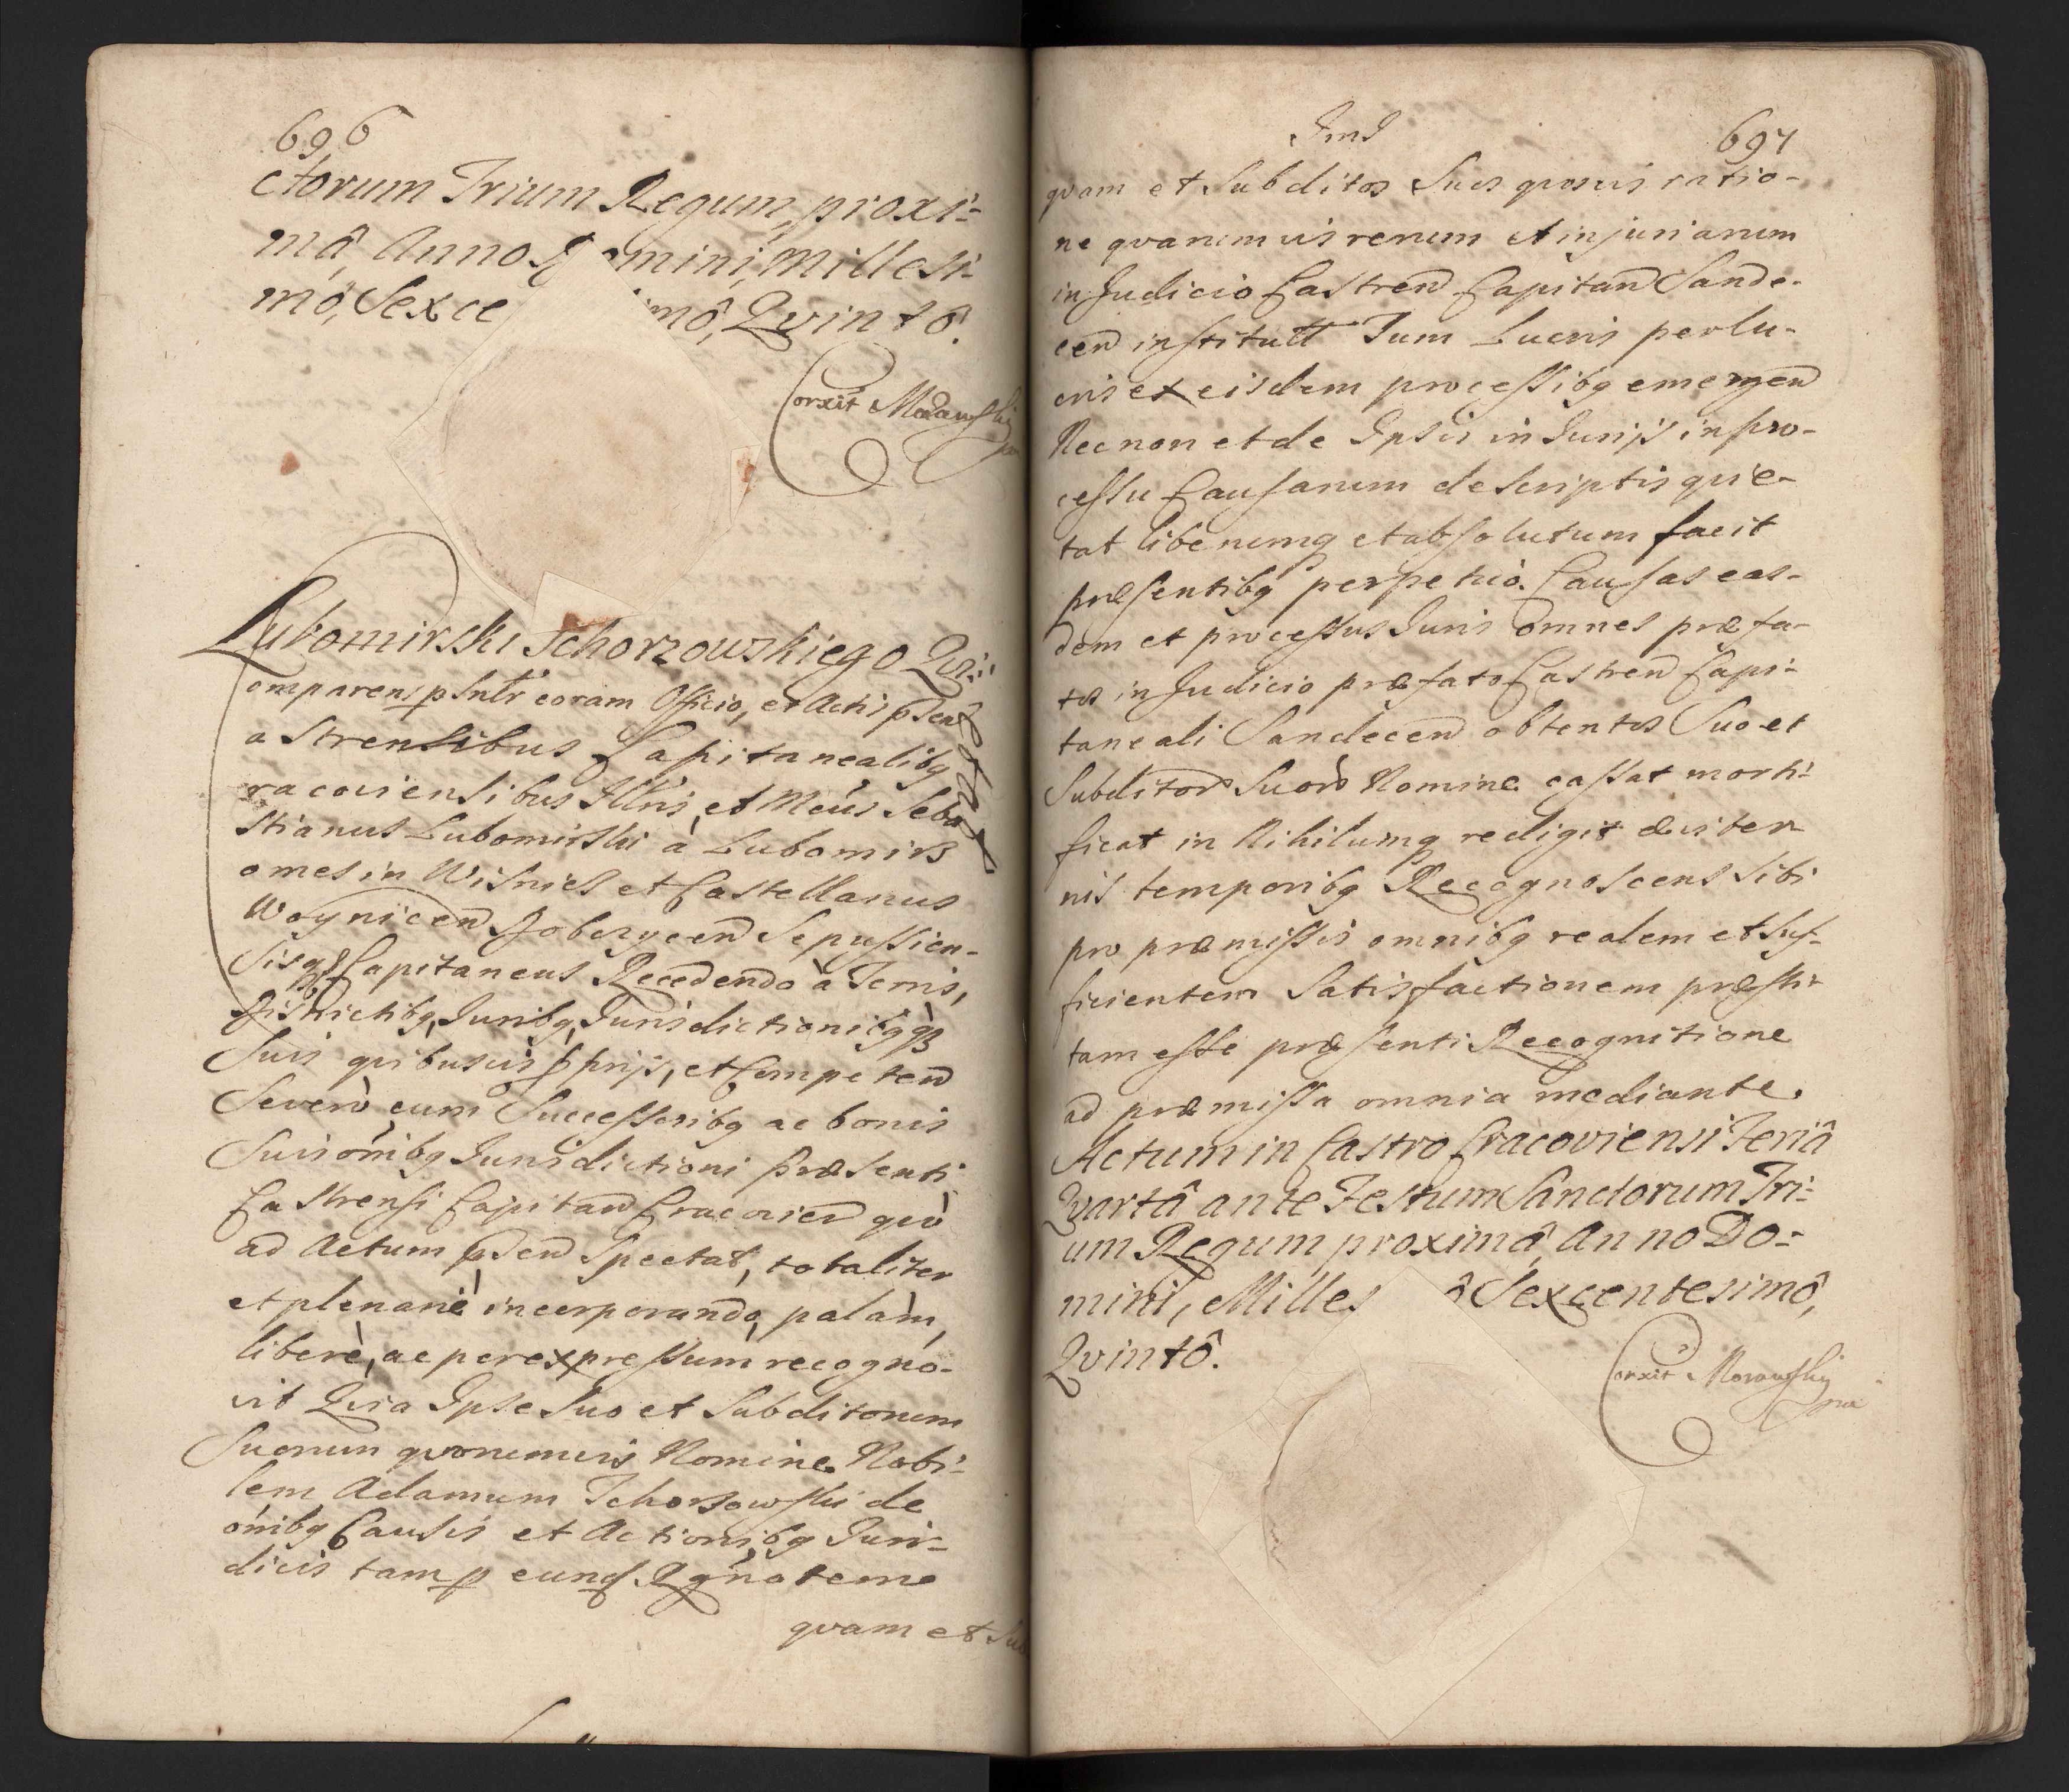 696
ctorum Trium Regum, proxi-
mâ, Anno Domini, Millesi-
mô, Sexce mô, Qvintô.
Corxit Morawsky
Lubomirski Tchorzowskiego Qvi-
tat
omparens pSntr coram Officio, et Actis pSen
astrensibus Capitanealibq
racoviensibus Illris, et Mcus Seba
stianus Lubomirski à Lubomirz
omes in Wisnicz et Castellanus
Woynicen Dobczycen Sepussien-
sisq Capitaneus Recedendo à Terris,
Districtibq, Juribq, Jurisdictionibqq3
Suis quibusvis pprijs, et Competen
Severò, cum Successoribq ac bonis
Suis om̃ibq Jurisdictioni præsenti
Castrensi Capitan Cracovien quò
ad Actum pSen Spectat, totaliter
et plenariè incorporando, palàm,
liberè, ac per expressum recogno-
vit Qvia Ipse Suo et Subditorum
Suorum qvorumvis Nomine Nobi-
lem Adamum Tchorzowski de
om̃ibq Causis et Actionibq Juri-
dicis tam p eund Rgnotem
qvam et Sub
Imd
697
qvam et Subditos Suos qvosvis ratio-
ne qvarumvis rerum et injuriarum
in Judicio Castren Capitan Sande-
cen institutt Tum Lucris perlu-
cris ex eisdem processibq emergen
Nec non et de Ipsis in Jurijs in pro-
cessu Causarum descriptis quie-
tat liberumq et absolutum facit
præsentibq perpetuò. Causas eas-
dem et processus Juris omnes præfa-
tos in Judicio præfato Castren Capi-
taneali Sandecen obtentos Suo et
Subditor Suor Nomine cassat morti-
ficat in Nihilumq redigit æviter
nis temporibq Recognoscens Sibi
pro præmissis omnibq realem et suf-
ficientem Satisfactionem præsti-
tam esse præsenti Recognitione
ad præmissa omnia mediante.
Actum in Castro Cracoviensi Feriâ
Qvartâ ante Festum Sanctorum Tri-
um Regum proximâ, Anno Do-
mini, Milles ô Sexcentesimô,
Qvintô.
Corxit Morawsky
mp